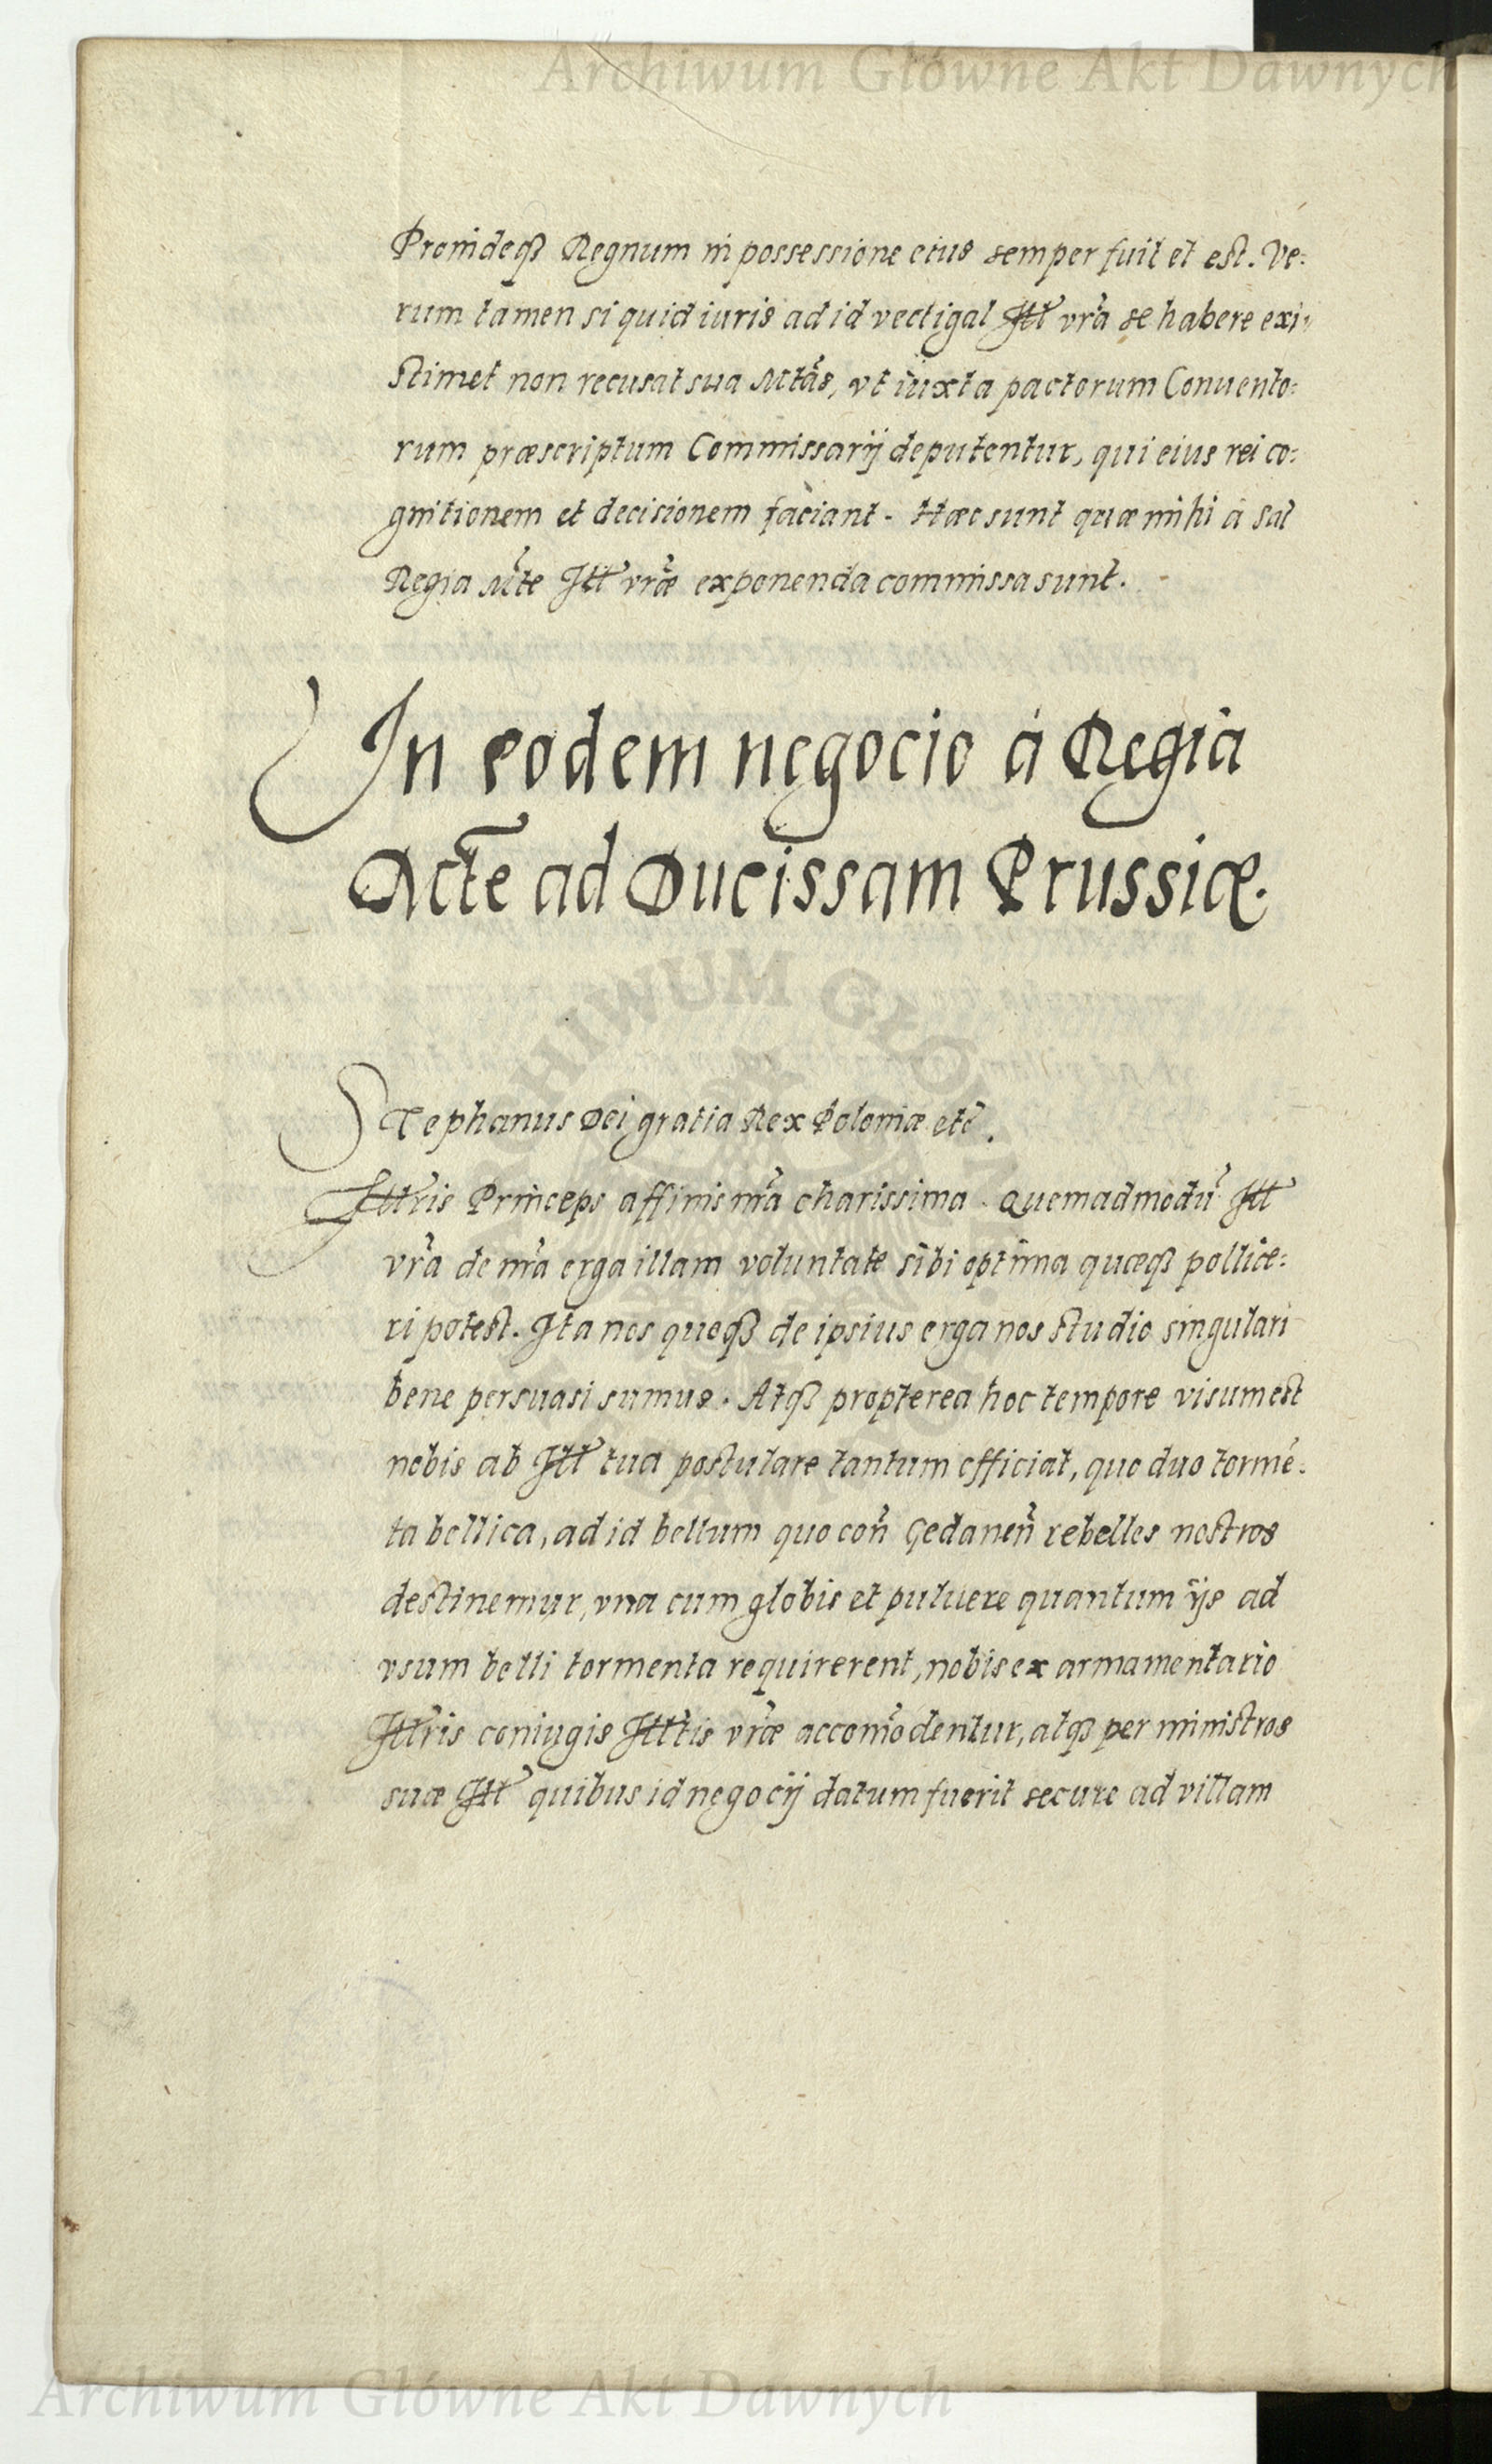 Archiwum Główne Akt Dawnych
Proindeq₃ Regnum in possessione eius semper fuit et est. Ve:
rum tamen si quid iuris ad id vectigal Ill vrã se habere exi:
stimet non recusat sua Mtãs, vt iuxta pactorum Conuento:
rum præscriptum Commissarij deputentur, qui eius rei co:
gnitionem et decisionem faciant. Hæc sunt quæ mihi à Sal
Regia Mte Ill vræ exponenda commissa sunt.
In eodem negocio à Regia
Mte ad Ducissam Prussiæ.
Stephanus Dei gratia Rex Poloniæ etc̃.
Illr̃is Princeps affinis nrã charissima. Quemadmodũ Ill
vrã de nrã erga illam voluntate sibi optima quæq₃ pollice:
ri potest. Ita nos quoq₃ de ipsius erga nos studio singulari
bene persuasi sumus. Atq₃ propterea hoc tempore visum est
nobis ab Ill tua postulare tantum efficiat, quo duo tormẽ:
ta bellica, ad id bellum quo coñ Gedaneñ rebelles nostros
destinemur, vna cum globis et puluere quantum ijs ad
vsum belli tormenta requirerent, nobis ex armamentario
Illr̃is coniugis Illtis vræ accom̃odentur, atq₃ per ministros
suæ Ill quibus id negocij datum fuerit secure ad villam
Archiwum Główne Akt Dawnych